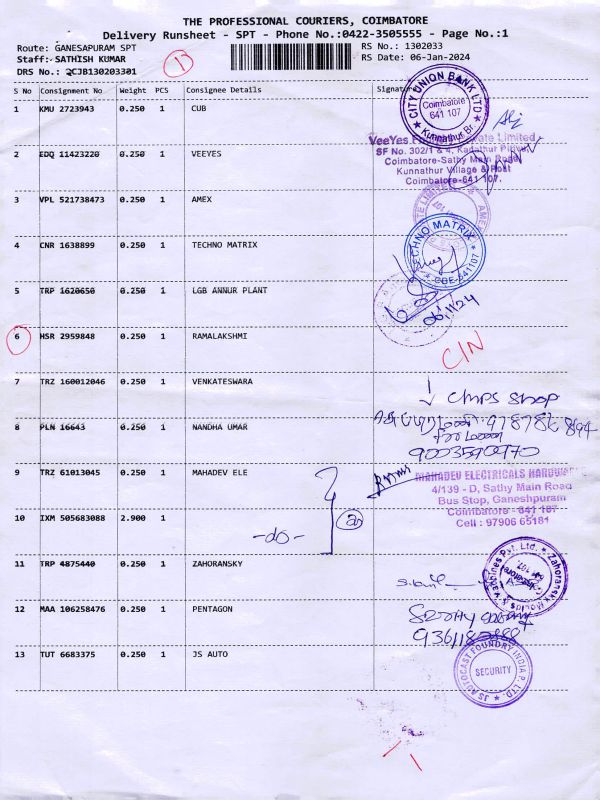 THE PROFESSIONAL COURIERS, COIMBATORE
Delivery Runsheet - SPT - Phone No.:0422-3505555 - Page No.:1
Route: GANESAPURAM SPT
RS No.: 1302033
Staff: SATHISH KUMAR
13
RS Date: 06-Jan-2024
DRS No.: QCJB130203301
S No Consignment No Weight PCS Consignee Details Signature
1 KMU 2723943 0.250 1 CUB
CITY UNION BANK LTD
Coimbatore
641 107
Kunnathur Br.
2 EDQ 11423220 0.250 1 VEEYES
Limited
SF No. 302/1 & 4,
Coimbatore-Sathy Main Road
Kunnathur Village & Post
Coimbatore-641 107.
3 VPL 521738473 0.250 1 AMEX
4 CNR 1638899 0.250 1 TECHNO MATRIX
TECHNO MATRIX
CBE-641107
5 TRP 1620650 0.250 1 LGB ANNUR PLANT
6 HSR 2959848 0.250 1 RAMALAKSHMI
C/N
7 TRZ 160012046 0.250 1 VENKATESWARA
8 PLN 16643 0.250 1 NANDHA UMAR
9 TRZ 61013045 0.250 1 MAHADEV ELE
MAHADEV ELECTRICALS HARDWARE
4/139 - D, Sathy Main Road
Bus Stop, Ganeshpuram
Coimbatore - 641 107
Cell : 97906 65181
10 IXM 505683088 2.900 1
-do-
11 TRP 4875440 0.250 1 ZAHORANSKY
12 MAA 106258476 0.250 1 PENTAGON
13 TUT 6683375 0.250 1 JS AUTO
JS AUTOCAST FOUNDRY INDIA P. LTD.
SECURITY